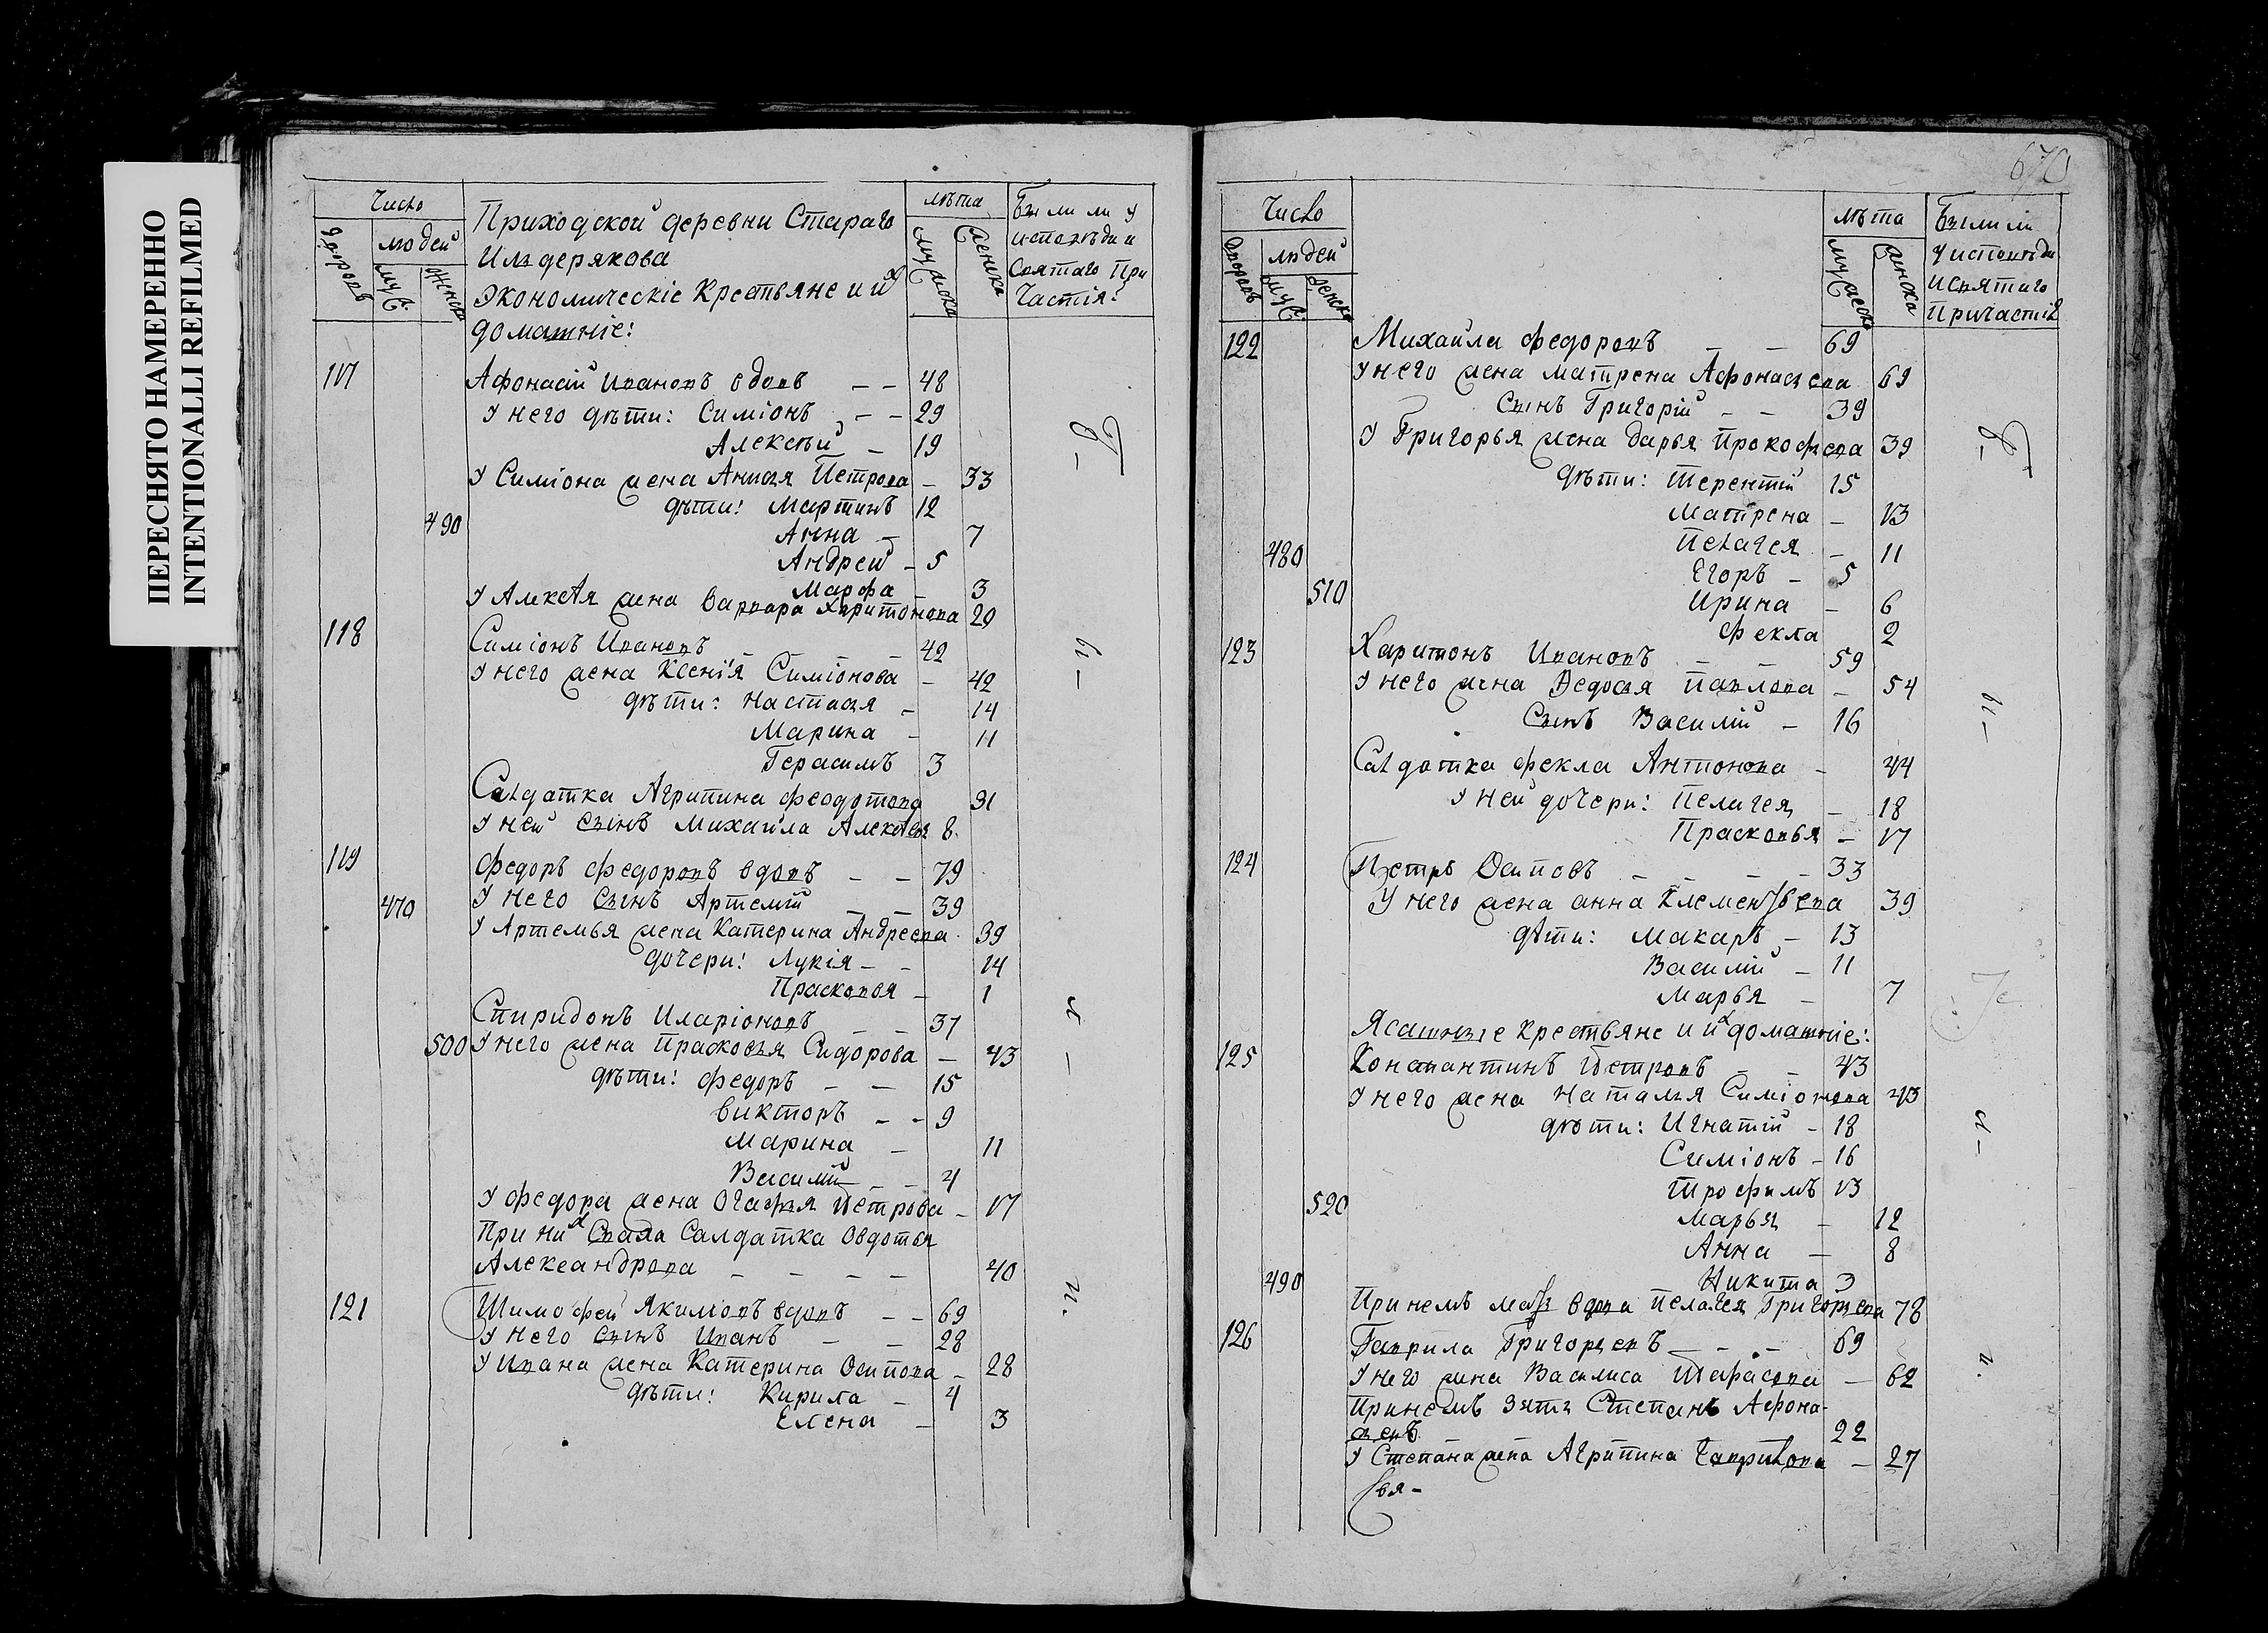 ПЕРЕСНЯТО НАМЕРЕННО
INTENTIONALLI REFILMED
Число
дворовъ
людей
муж.
женск
Приходской деревни Стараго
Ильдерякова
Экономическіе Крестьяне и их
домашніе:
лѣта
мужска
женска
Были ли у
исповѣди и
Святаго При
частія:
117 Афонасій Ивановъ вдовъ – – 48
У него дѣти: Симіонъ – – 29
Алексѣй – 19
У Симіона жена Анисья Петрова – 33
дѣти: Мартинъ 12
490 Анна – 7
Андрей – 5
Марфа – 3
У Алексѣя жена Варвара Харитонова 20
118 Симіонъ Ивановъ – – – 42
У него жена Ксенія Симіонова – 42
дѣти: Настасья – 14
Марина – 11
Герасимъ 3
Салдатка Агрипина Феодотова 31
У ней сынъ Михайла Алексѣевъ 8
119 Федоръ Федоровъ вдовъ – – 79
470 У него Сынъ Артемій – – 39
У Артемья жена Катерина Андреева 39
дочери: Лукія – – 14
Прасковья – 1
Спиридонъ Иларіоновъ – – 37
500 У него жена Прасковья Сидорова – 43
дѣти: Федоръ – – 15
Викторъ – – 9
Марина – 11
Василій – – 4
У Федора жена Огафья Петрова – 17
При них Салдатка Овдотья
Александрова – – – – 40
121 Тимофей Якимовъ вдовъ – – 69
У него сынъ Иванъ – – 28
У Ивана жена Катерина Осипова – 28
дѣти: Кирила – 4
Елена – 3
б –
ы –
л –
и.
670
Число
дворовъ
людей
муж.
женск
лѣта
мужска
женска
Были ли
у исповѣди
и святаго
Причастія
122 Михайла Федоровъ – – 69
У него жена Матрена Афонасьева 69
Сынъ Григорій – – 39
У Григорья жена Дарья Прокофьева 39
дѣти: Терентій 15
Матрена – 13
480 Пелагея – 11
Егоръ – 5
510 Ирина – 6
Фекла 2
123 Харитонъ Ивановъ – – 59
У него жена Ѳедосья Павлова – 54
Сынъ Василій – 16
Салдатка Фекла Антонова – 44
У ней дочери: Пелагея – 18
Прасковья – 17
124 Петръ Осиповъ – – – – 33
У него жена Анна Клементьева 39
дѣти: Макаръ – 13
Василій – 11
Марья – 7
Ясашные крестьяне и их домашніе:
125 Констаантинъ Петровъ – – 43
У него жена Наталья Симіонова 43
дѣти: Игнатій – 18
Симіонъ – 16
Трофимъ 13
520 Марья – 12
Анна – 8
490 Никита 3
При немъ мать вдова Пелагея Григорьева 78
126 Гаврила Григорьевъ – – – 69
У него жена Василиса Тарасова – 62
При немъ зять Степанъ Афона-
сьевъ 22
У Степана жена Агрипина Гаврилова – 27
б –
ы –
л –
и.